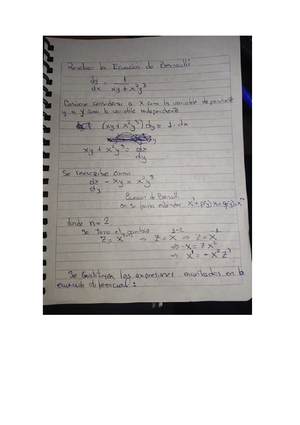 Resolver la Ecuación de Bernoulli
dy/dx = 1/(xy + x²y³)
Conviene considerar a x como la variable dependiente
y a y como la variable independiente
(xy + x²y³) dy = 1 · dx
xy + x²y³ = dx/dy
Se reescribe como
dx/dy - xy = x²y³
Ecuación de Bernoulli
en su forma estándar x' + p(y)x = q(y)x^n
donde n = 2
Se toma el
z = x → z = x → z = x⁻¹
→ x = z
→ x' = - x² z'
Se sustituyen las expresiones encontradas en la
ecuación diferencial: